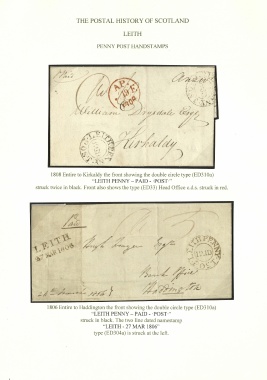 THE POSTAL HISTORY OF SCOTLAND
LEITH
PENNY POST HANDSTAMPS
Paid
William Drysdale Esqr
Kirkaldy
1808 Entire to Kirkaldy the front showing the double circle type (ED310a)
"LEITH PENNY - PAID - POST·"
struck twice in black. Front also shows the type (ED33) Head Office c.d.s. struck in red.
Paid
LEITH
27 MAR 1806
Hugh
Esqr
Office
1806 Entire to Haddington the front showing the double circle type (ED310a)
"LEITH PENNY - PAID - POST·"
struck in black. The two line dated namestamp
"LEITH - 27 MAR 1806"
type (ED304a) is struck at the left.